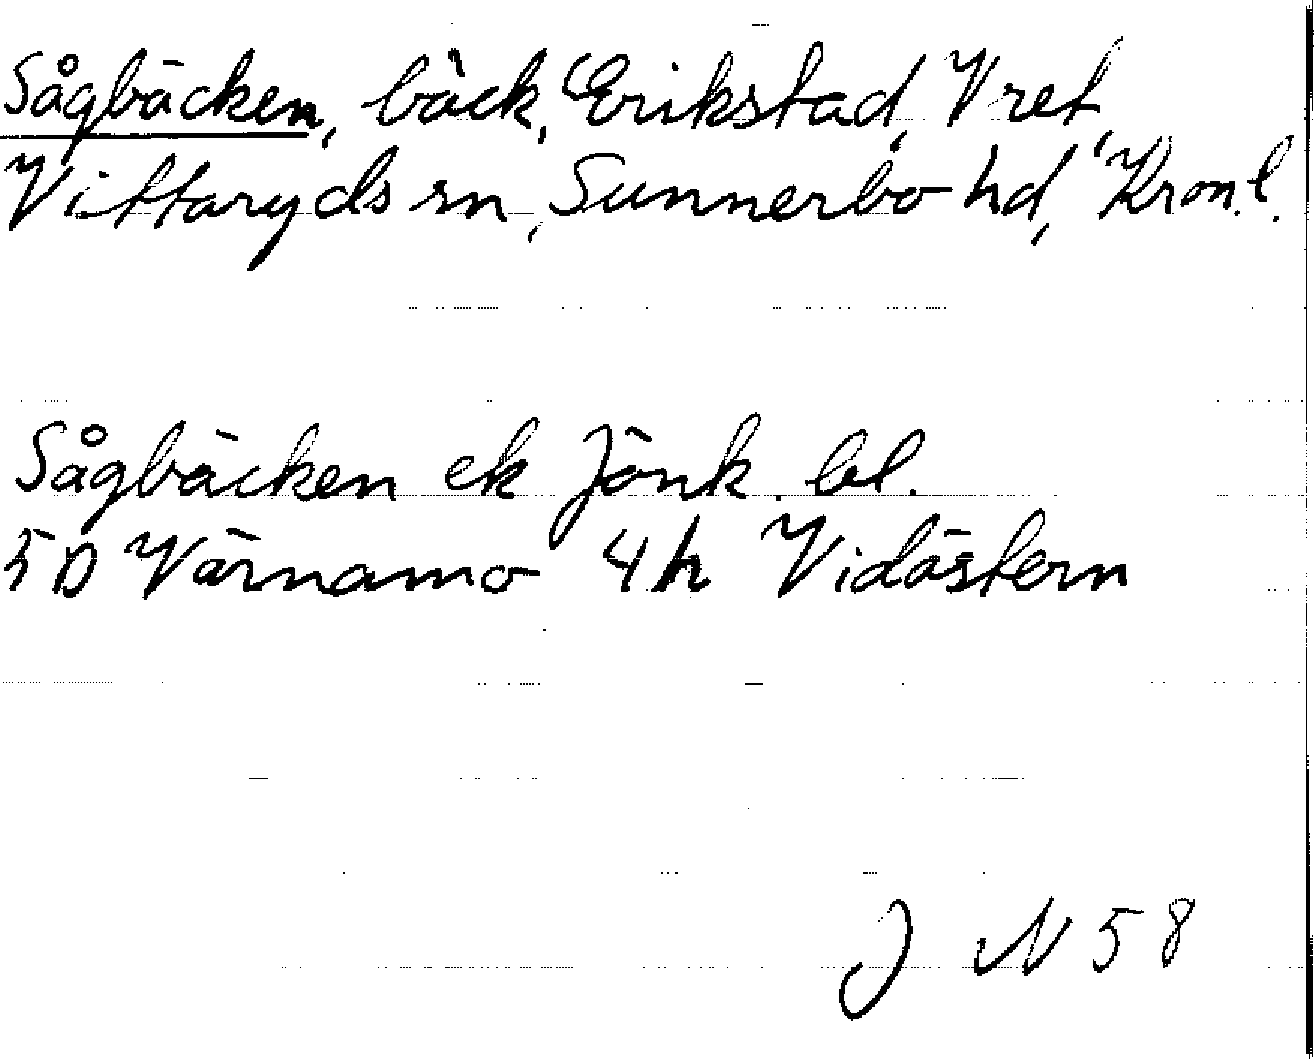 Sågbäcken, bäck, Erikstad, Vret,
Vittaryds sn, Sunnerbo hd, Kron.l.
Sågbäcken ek Jönk. bl.
5D Värnamo 4h Vidöstern
J N 58